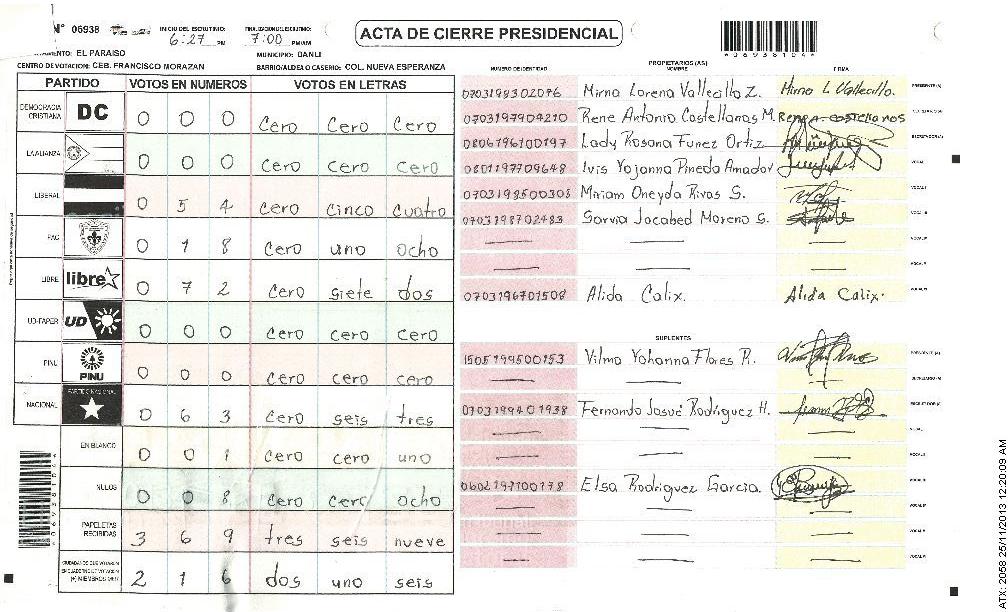 N° 06938
INICIO DEL ESCRUTINIO: 6:27 PM
FINALIZACION ESCRUTINIO: 7:00 PM/AM
ACTA DE CIERRE PRESIDENCIAL
*06938104*
EL PARAISO
MUNICIPIO: DANLI
CENTRO DE VOTACION: CEB. FRANCISCO MORAZAN
BARRIO/ALDEA O CASERIO: COL. NUEVA ESPERANZA
PARTIDO VOTOS EN NUMEROS VOTOS EN LETRAS
DEMOCRACIA CRISTIANA DC 0 0 0 cero cero cero
LA ALIANZA 0 0 0 cero cero cero
LIBERAL 0 5 4 cero cinco cuatro
PAC 0 1 8 cero uno ocho
LIBRE libre 0 7 2 cero siete dos
UD-FAPER UD 0 0 0 cero cero cero
PINU PINU 0 0 0 cero cero cero
NACIONAL PARTIDO NACIONAL 0 6 3 cero seis tres
EN BLANCO 0 0 1 cero cero uno
NULOS 0 0 8 cero cero ocho
PAPELETAS RECIBIDAS 3 6 9 tres seis nueve
CIUDADANOS QUE VOTARON EN CUADERNO DE VOTACION (+) MIEMBROS MER 2 1 6 dos uno seis
*06938104*
PROPIETARIOS (AS)
NUMERO DE IDENTIDAD NOMBRE FIRMA
0703198302076 Mirna Lorena Vallecillo Z. Mirna L Vallecillo. PRESIDENTE (A)
0703197904210 Rene Antonio Costellanos M. Rene A costellanos
0806196100197 Lady Rosana Funez Ortiz SECRETARIO (A)
0801197709648 Ivis Yojanna Pineda Amador VOCAL
0703198500308 Miriam Oneyda Rivas S. VOCAL
0703198702483 Sarvia Jacabed Moreno G. VOCAL
VOCAL
VOCAL
0703196701508 Alida Calix. Alida Calix. VOCAL
SUPLENTES
1505199500153 Vilma Yohanna Flores R. PRESIDENTE (A)
SECRETARIO (A)
0703199401938 Fernando Josué Rodriguez H. ESCRUTADOR (A)
VOCAL
VOCAL
0602197100178 Elsa Rodriguez Garcia. VOCAL
VOCAL
VOCAL
VOCAL
ATX: 2058 25/11/2013 12:20:09 AM